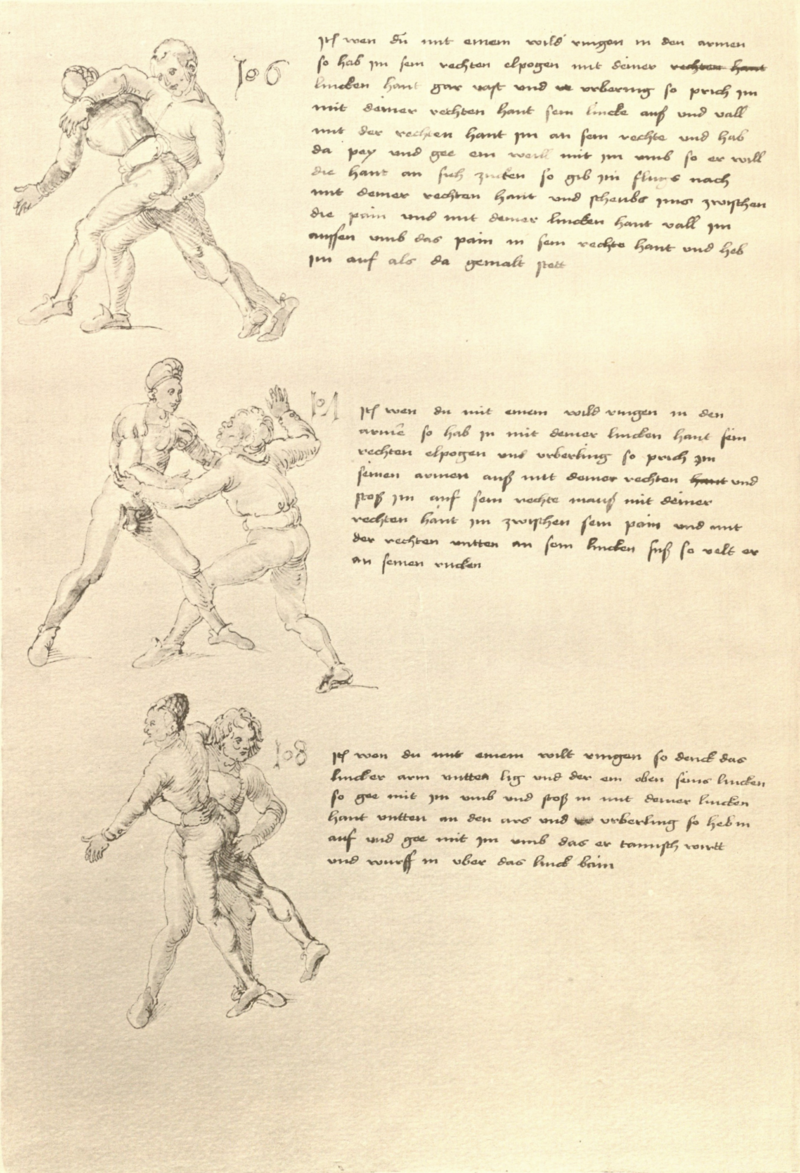 106
Itß wen dů mit einem wild ringen in den armen
so hab im sein rechten elpogen mit deiner rechten hant
lincken hant gar vast und urbering so prich im
mit deiner rechten hant sein lincke auf und vall
mit der rechten hant im an sein rechte und hab
da pey und gee ein weill mit im umb so er will
die hant an sich zucken so gib im flucs nach
mit deiner rechten hant und scheubs ims zwischen
die pain und mit deiner lincken hant vall im
aussen umb das pain in sein rechte hant und heb
im auf als da gemalt stett
107
Itß wen du mit einem wild ringen in den
armē so hab in mit deiner lincken hant sein
rechten elpogen uns urberling so prich im
seinen armen auß mit deiner rechten hant und
stoß im auf sein rechte mauß mit deiner
rechten hant im zwischen sein pain und mit
der rechten untten an sein lincken fuß so velt er
an seinen rucken
108
Itß wen du mit einem wilt ringen so denck das
lincker arm untten lig und der ein oben seins lincken
so gee mit im umb und stoß in mit deiner lincken
hant untten an den ars und urberling so heb in
auf und gee mit im umb das er tamisch wirtt
und wurff in uber das linck bain